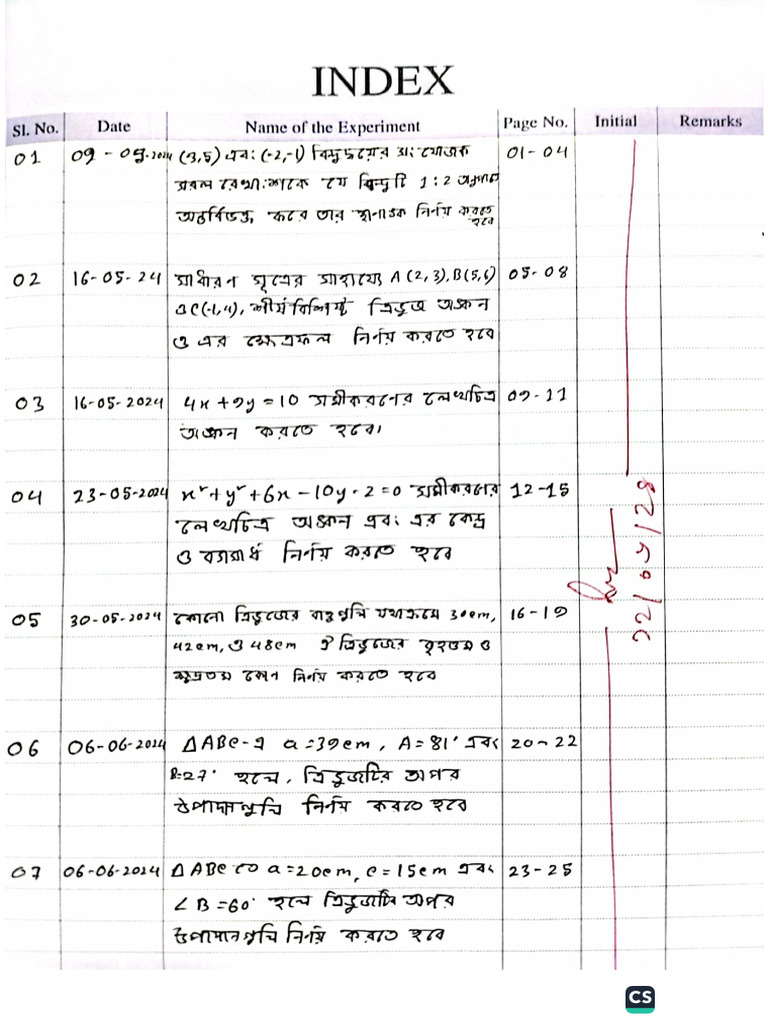 INDEX
Sl. No. Date Name of the Experiment Page No. Initial Remarks
01 09-05-2024 (-3,5) এবং (-2,-1) বিন্দুদ্বয়ের সংযোজক 01-04
সরল রেখাংশকে যে বিন্দুটি 1:2 অনুপাতে
অন্তর্বিভক্ত করে তার স্থানাঙ্ক নির্ণয় করতে
হবে
02 16-05-24 সাধারন সূত্রের সাহায্যে A(2,3), B(5,6) 05-08
ও C(-1,4), শীর্ষবিশিষ্ট ত্রিভুজ অঙ্কন
ও এর ক্ষেত্রফল নির্ণয় করতে হবে
03 16-05-2024 4x+9y=10 সমীকরনের লেখচিত্র 09-11
অঙ্কন করতে হবে।
04 23-05-2024 x²+y²+6x-10y-2=0 সমীকরণের 12-15
লেখচিত্র অঙ্কন এবং এর কেন্দ্র
ও ব্যাসার্ধ নির্ণয় করতে হবে
05 30-05-2024 কোনো ত্রিভুজের বাহুগুলি যথাক্রমে 30cm, 16-19
42cm, ও 48cm ঐ ত্রিভুজের বৃহত্তম ও
ক্ষুদ্রতম কোন নির্ণয় করতে হবে
06 06-06-2024 ΔABC-এ a=39cm, A=81° এবং 20-22
B=27° হলে, ত্রিভুজটির অপর
উপাদানগুলি নির্ণয় করতে হবে
07 06-06-2024 ΔABC তে a=20cm, c=15cm এবং 23-25
∠B=60° হলে ত্রিভুজটির অপর
উপাদানগুলি নির্ণয় করতে হবে
CS